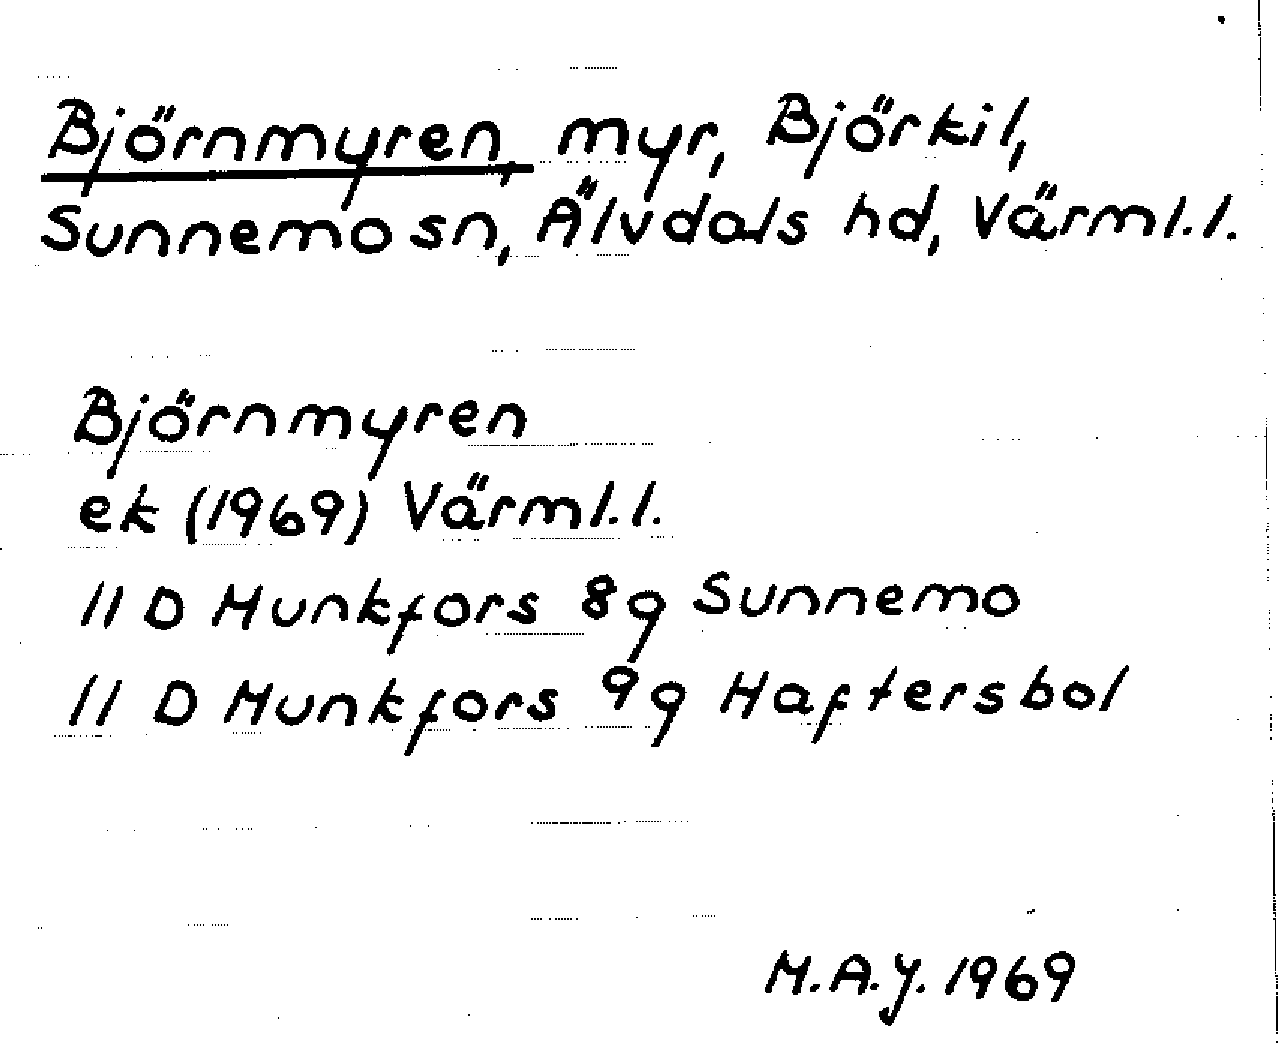 Björnmyren, myr, Björkil,
Sunnemo sn, Älvdals hd, Värml.l.
Björnmyren
ek (1969) Värml.l.
11 D Munkfors 8g Sunnemo
11 D Munkfors 9g Haftersbol
M.A.Y. 1969